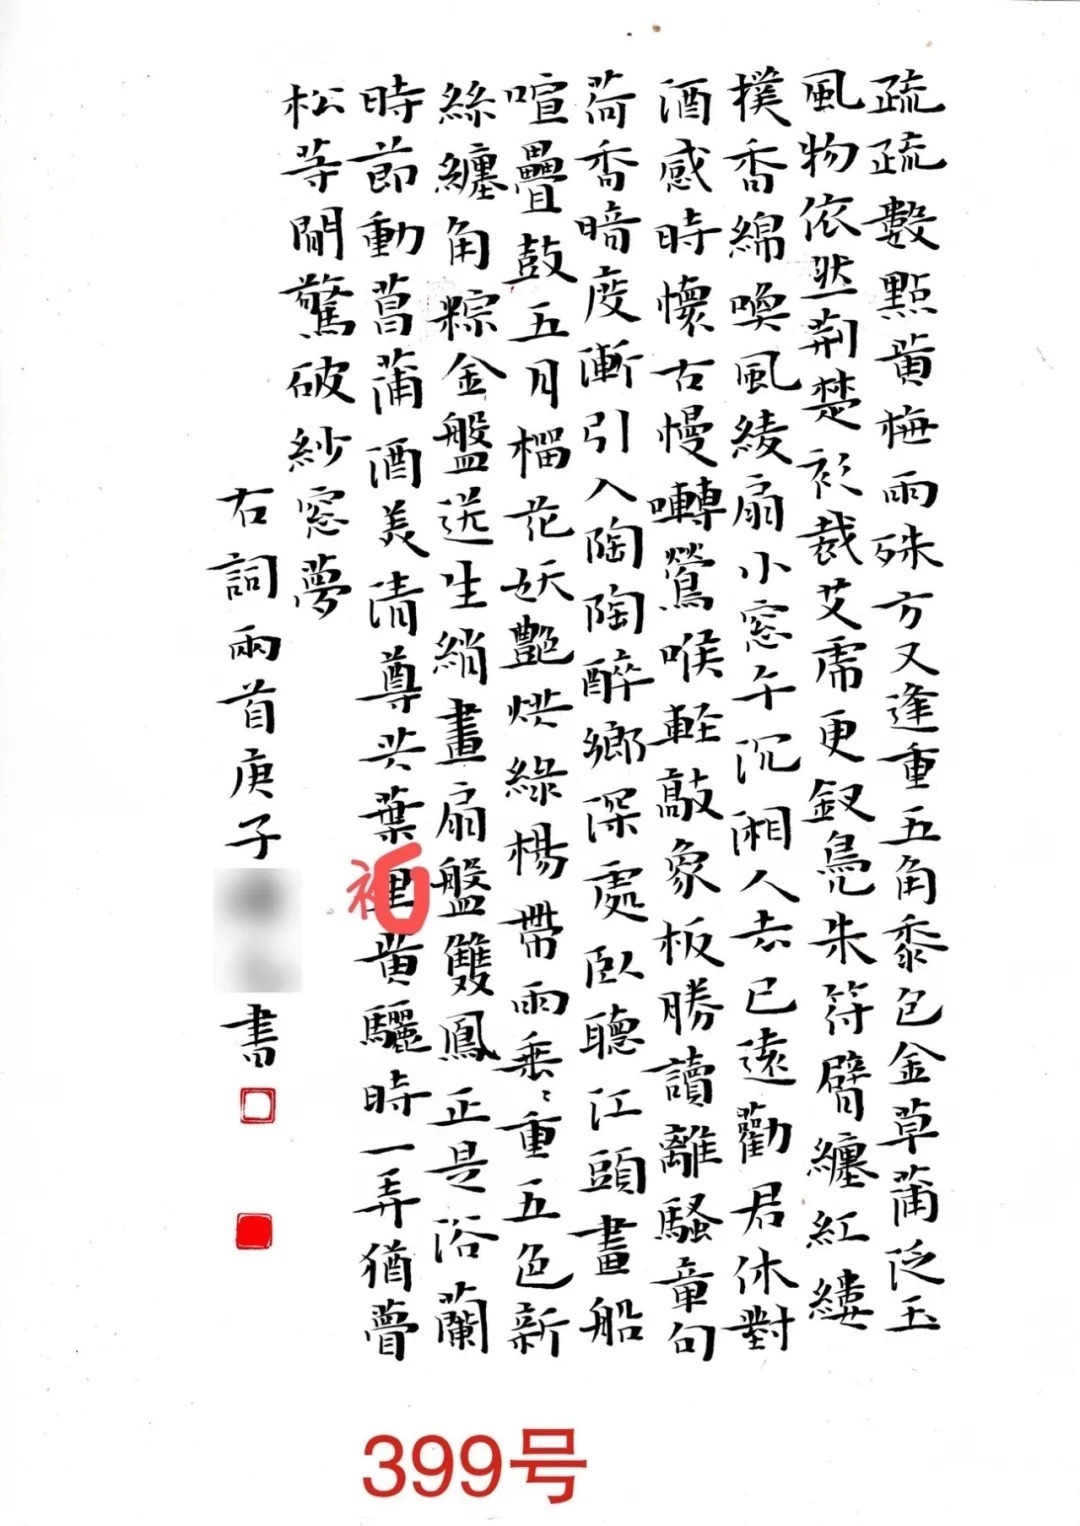 疏疏數點黃梅雨殊方又逢重五角黍包金草蒲泛玉
風物依然荊楚衫裁艾虎更釵鳧朱符臂纏紅縷
撲香綿喚風綾扇小窓午沉湘人去已遠勸君休對
酒感時懷古慢囀鶯喉輕敲象板勝讀離騷章句
荷香暗度漸引入陶陶醉鄉深處臥聽江頭畫船
喧疊鼓五月榴花妖艷烘綠楊帶雨垂垂重五色新
絲纏角粽金盤送生綃畫扇盤雙鳳正是浴蘭
時節動菖蒲酒美清尊共葉里黃驪時一弄猶瞢
松等閒驚破紗窓夢
右詞兩首庚子
書
衤
399号